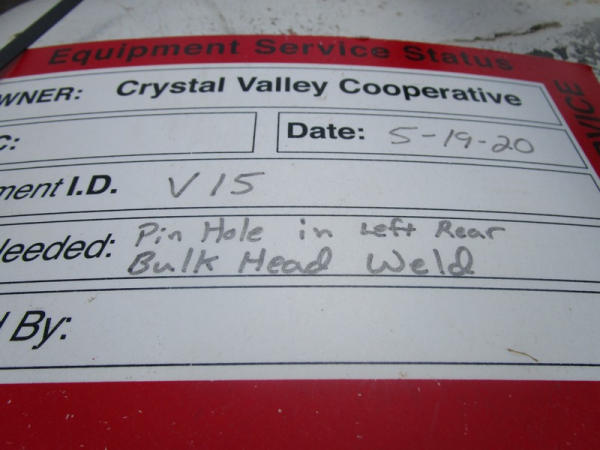 Equipment Service Status
WNER: Crystal Valley Cooperative
C:
Date: 5-19-20
ment I.D. V15
eeded: Pin Hole in Left Rear
Bulk Head Weld
By:
VICE